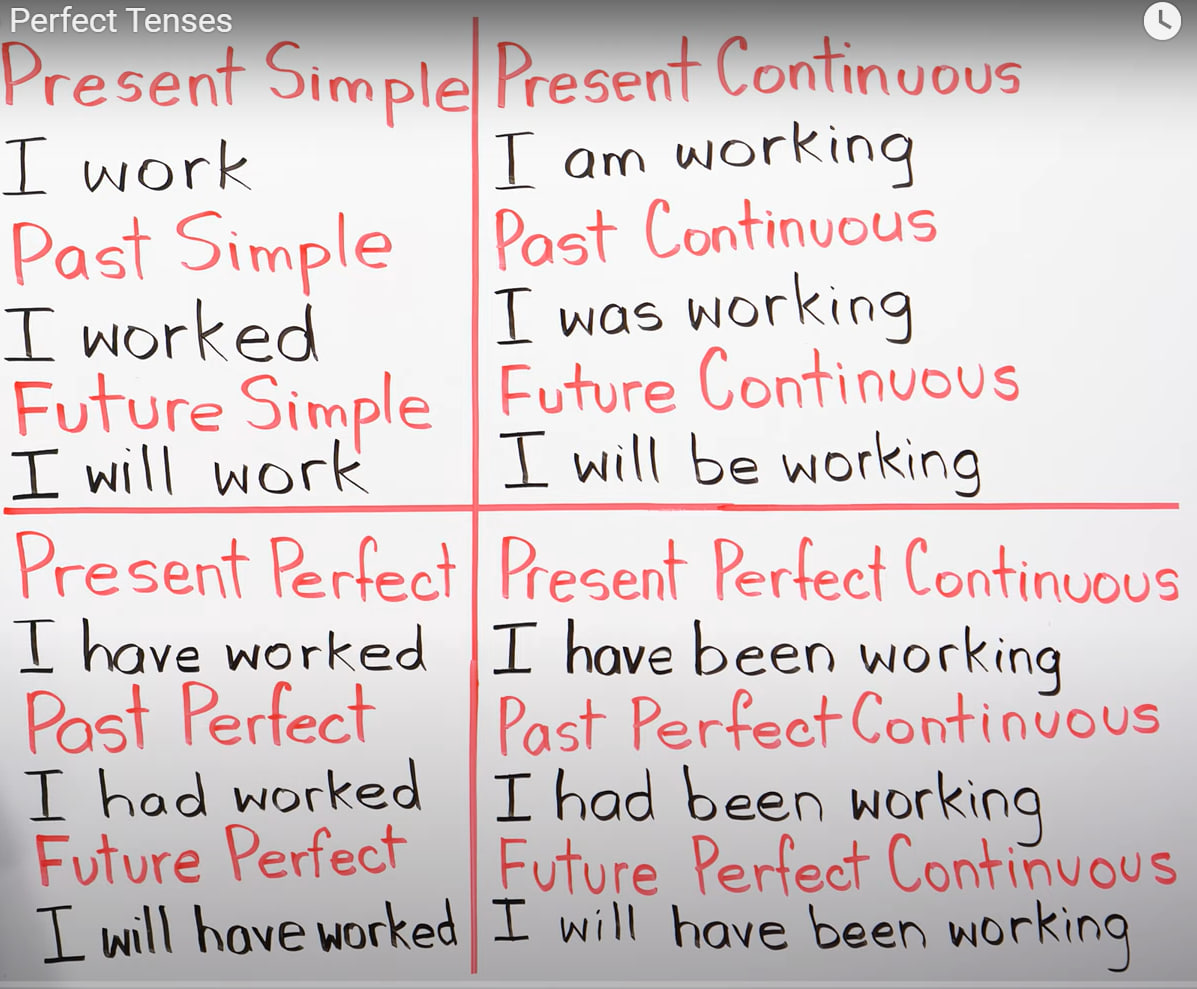 Perfect Tenses
Present Simple
I work
Past Simple
I worked
Future Simple
I will work
Present Continuous
I am working
Past Continuous
I was working
Future Continuous
I will be working
Present Perfect
I have worked
Past Perfect
I had worked
Future Perfect
I will have worked
Present Perfect Continuous
I have been working
Past Perfect Continuous
I had been working
Future Perfect Continuous
I will have been working